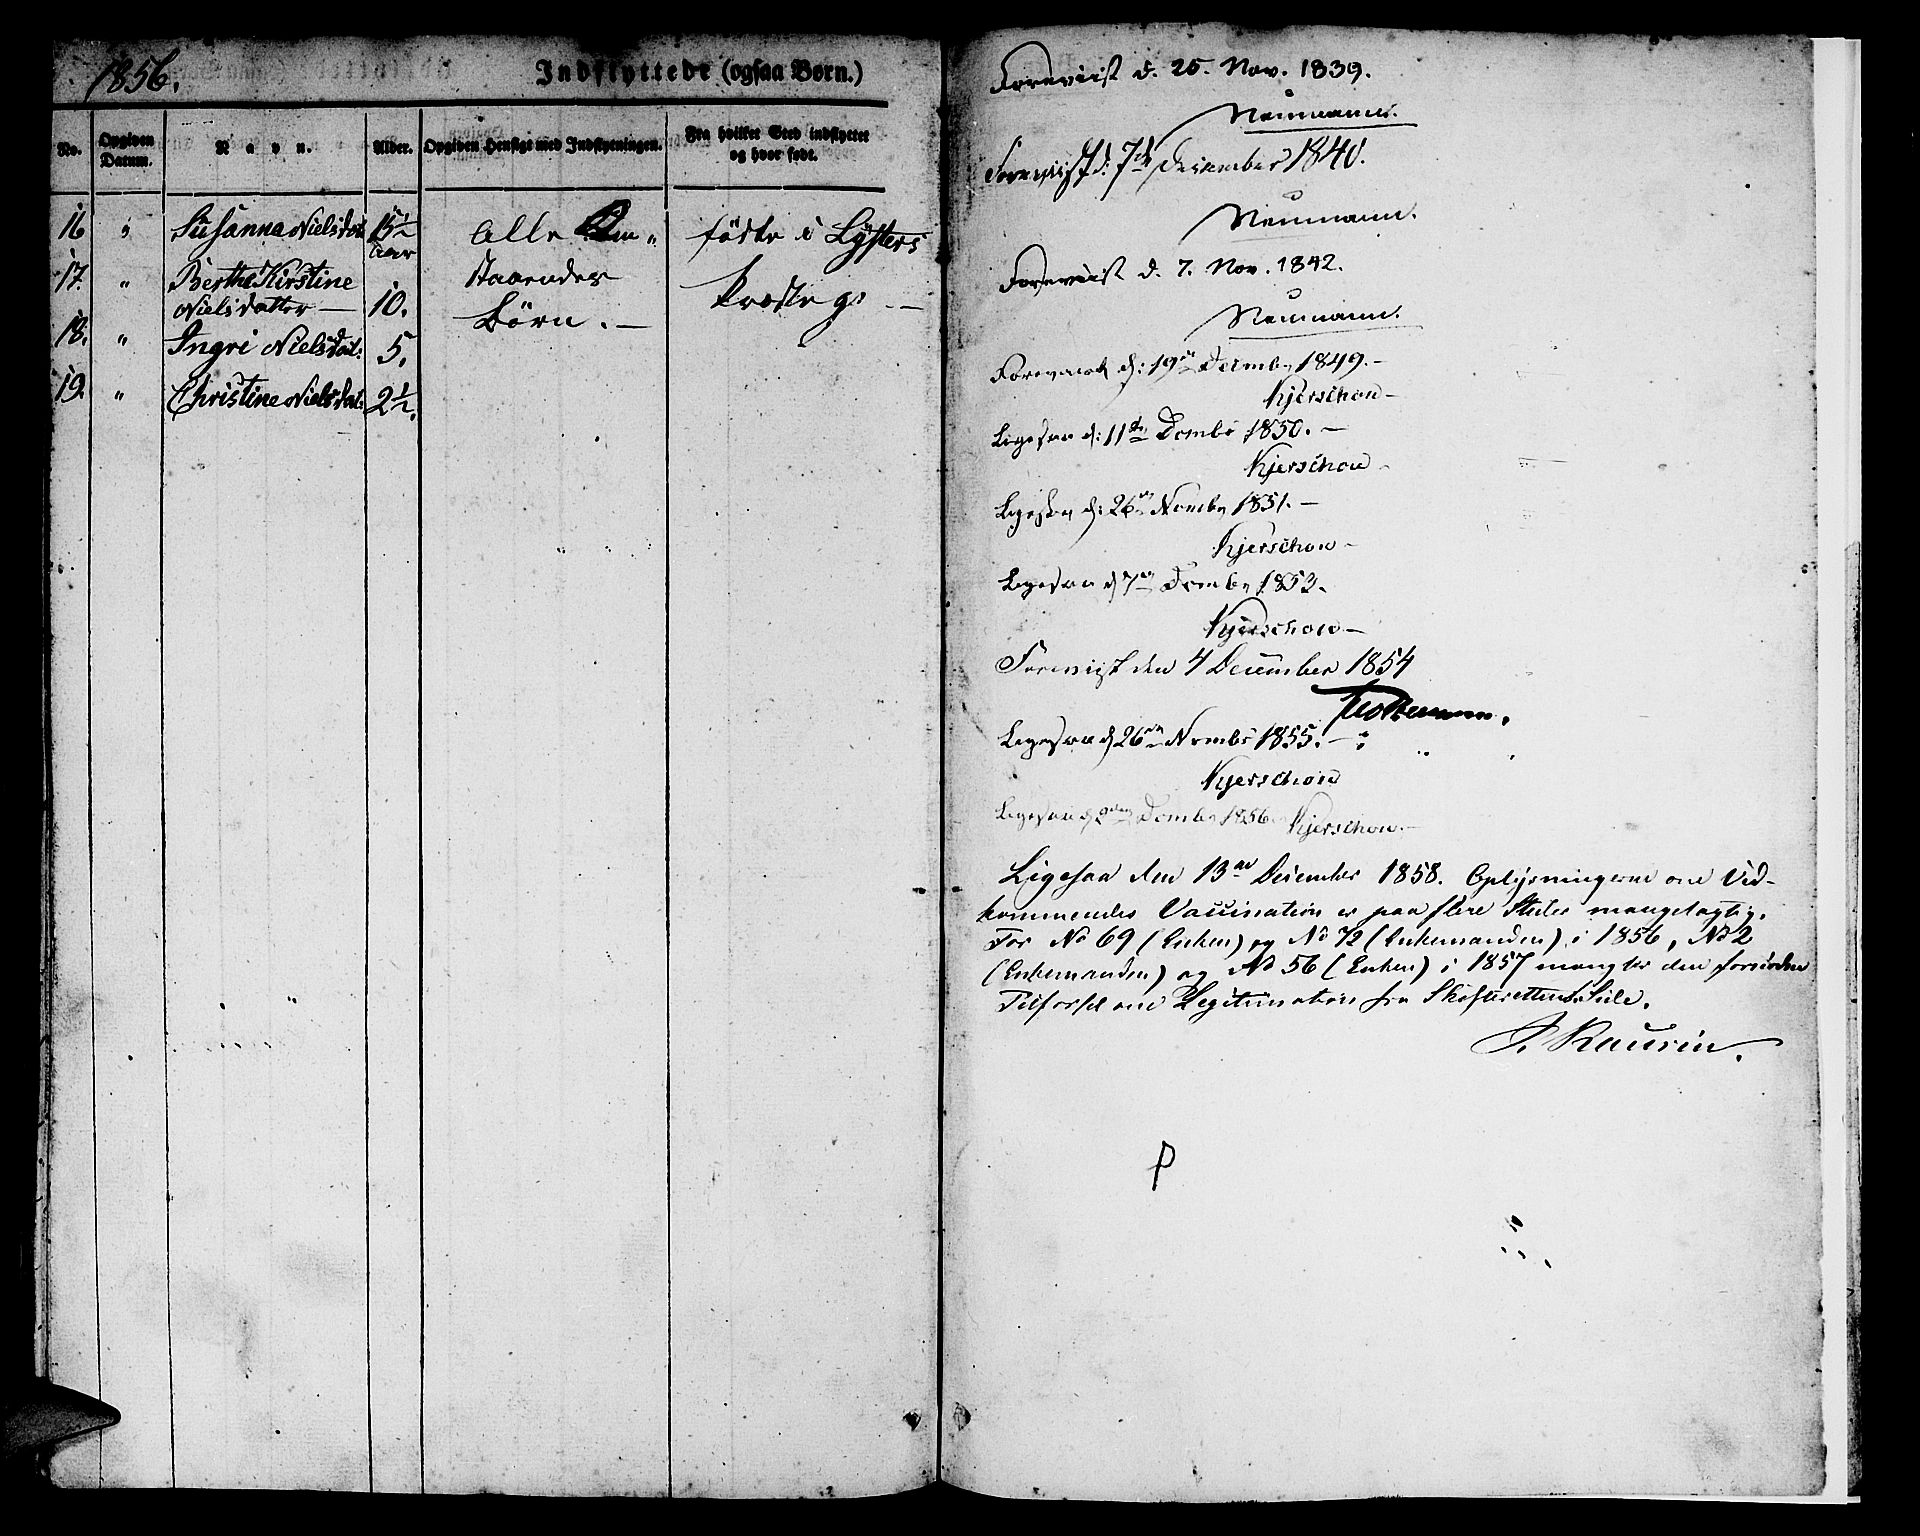 1856.
Indflyttede (ogsaa Børn.)
No.
Opgiven Datum.
Navn.
Alder.
Opgiven Hensigt med Indflytningen.
Fra hvilket Sted indflyttet og hvor født.
16 " Susanna Nielsdat 15½ aar Alle Om- fødte i Lysters
17. " Berthe Kirstine staaendes Præsteg:
Nielsdatter — 10. Børn. —
18. " Ingri Nielsdat: 5.
19. " Christine Nielsdat: 2½.
Foreviist d. 25. Nov. 1839.
Neumann.
Foreviist d: 7de December 1840.
Neumann.
Foreviist d. 7. Nov. 1842.
Neumann.
Foreviist d: 19de Decmbr 1849. —
Kjerschow —
Ligesaa d: 11te Dcmbr 1850. —
Kjerschow
Ligesaa d: 26de Novmbr 1851. —
Kjerschow —
Ligesaa d 7de Decmbr 1853.
Kjerschow —
Foreviist den 4 December 1854
Ligesaa d 26de Novmbr 1855. —
Kjerschow
Ligesaa d 2den Decmbr 1856 Kjerschow. —
Ligesaa den 13de December 1858. Oplysningerne om Ved-
kommendes Vaccination er paa flere Steder mangelagtig.
For No 69 (Enken) og No 72 (Enkemanden) i 1856, No 2
(Enkemanden) og No 56 (Enken) i 1857 mangler den fornødne
Tilførsel om Legitimation fra Skifterettens Side.